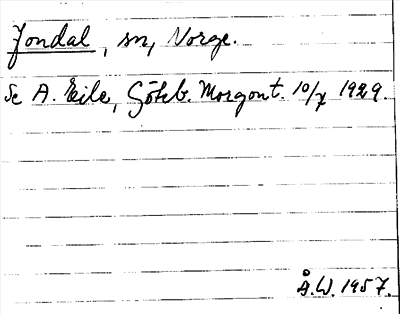 Jondal, sn, Norge.
Se A. Eile, Göteb. Morgont. 10/7 1929.
Å.W. 1957.